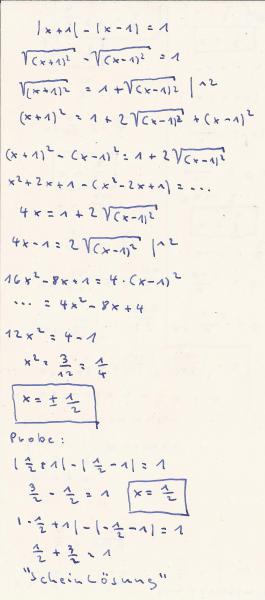 |x+1| - |x-1| = 1
√(x+1)² - √(x-1)² = 1
√(x+1)² = 1 + √(x-1)² |^2
(x+1)² = 1 + 2√(x-1)² + (x-1)²
(x+1)² - (x-1)² = 1 + 2√(x-1)²
x² + 2x + 1 - (x² - 2x + 1) = ...
4x = 1 + 2√(x-1)²
4x - 1 = 2√(x-1)² |^2
16x² - 8x + 1 = 4·(x-1)²
... = 4x² - 8x + 4
12x² = 4 - 1
x² = 3/12 = 1/4
x = ± 1/2
Probe:
|1/2 + 1| - |1/2 - 1| = 1
3/2 - 1/2 = 1 x = 1/2
|-1/2 + 1| - |-1/2 - 1| = 1
1/2 + 3/2 = 1
"Scheinlösung"